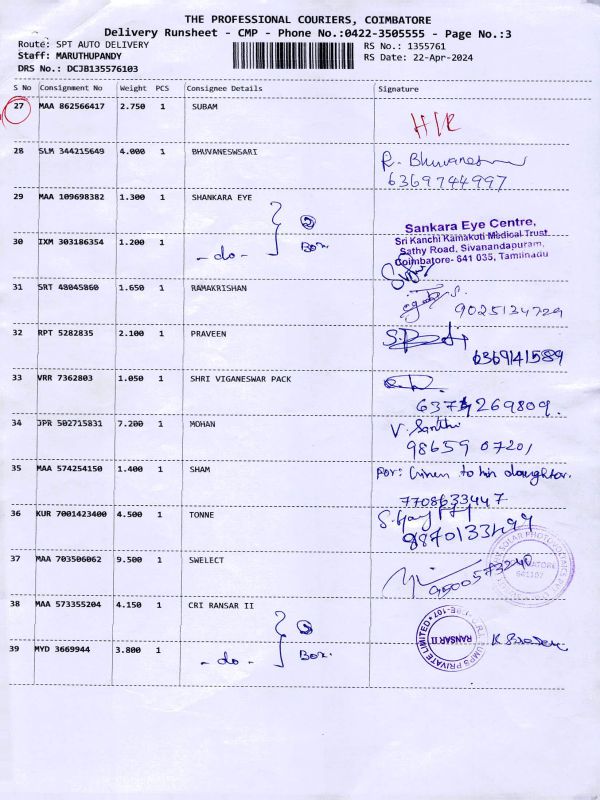 THE PROFESSIONAL COURIERS, COIMBATORE
Delivery Runsheet - CMP - Phone No.:0422-3505555 - Page No.:3
Route: SPT AUTO DELIVERY
RS No.: 1355761
Staff: MARUTHUPANDY
RS Date: 22-Apr-2024
DRS No.: DCJB135576103
S No Consignment No Weight PCS Consignee Details Signature
27 MAA 862566417 2.750 1 SUBAM H/R
28 SLM 344215649 4.000 1 BHUVANESWSARI R. Bhuvanes
6369744997
29 MAA 109698382 1.300 1 SHANKARA EYE
② Box.
Sankara Eye Centre,
Sri Kanchi Kamakoti Medical Trust
Sathy Road, Sivanandapuram,
Coimbatore- 641 035, Tamilnadu
30 IXM 303186354 1.200 1 - do -
31 SRT 48045860 1.650 1 RAMAKRISHAN
9025134729
32 RPT 5282835 2.100 1 PRAVEEN
6369141589
33 VRR 7362803 1.050 1 SHRI VIGANESWAR PACK
6374269809.
34 JPR 502715831 7.200 1 MOHAN V. Santhi
98659 07201
35 MAA 574254150 1.400 1 SHAM por: Given to his daughter.
7708633447
36 KUR 7001423400 4.500 1 TONNE
37 MAA 703506062 9.500 1 SWELECT
9500573240
38 MAA 573355204 4.150 1 CRI RANSAR II
② Box.
RANSAR II
39 MYD 3669944 3.800 1 - do -